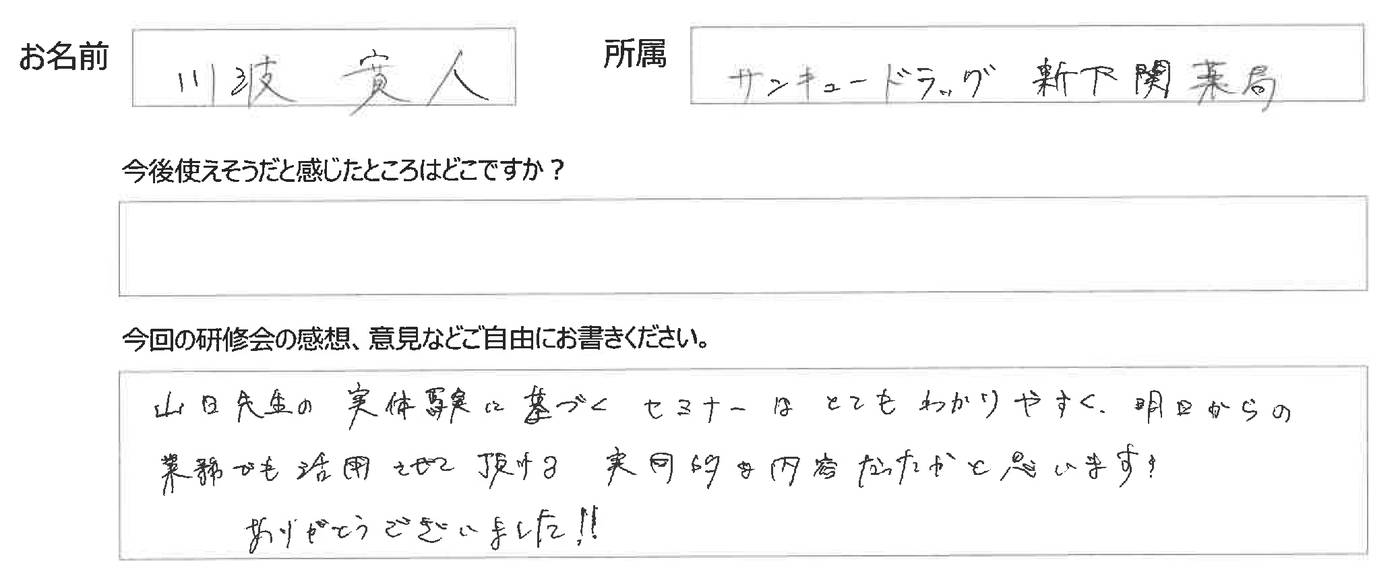 お名前 川波 寛人 所属 サンキュードラッグ 新下関薬局
今後使えそうだと感じたところはどこですか？
今回の研修会の感想、意見などご自由にお書きください。
山口先生の 実体験に基づく セミナーは とても わかりやすく、明日からの
業務でも活用させて頂ける 実用的な内容だったかと思います！
ありがとうございました!!